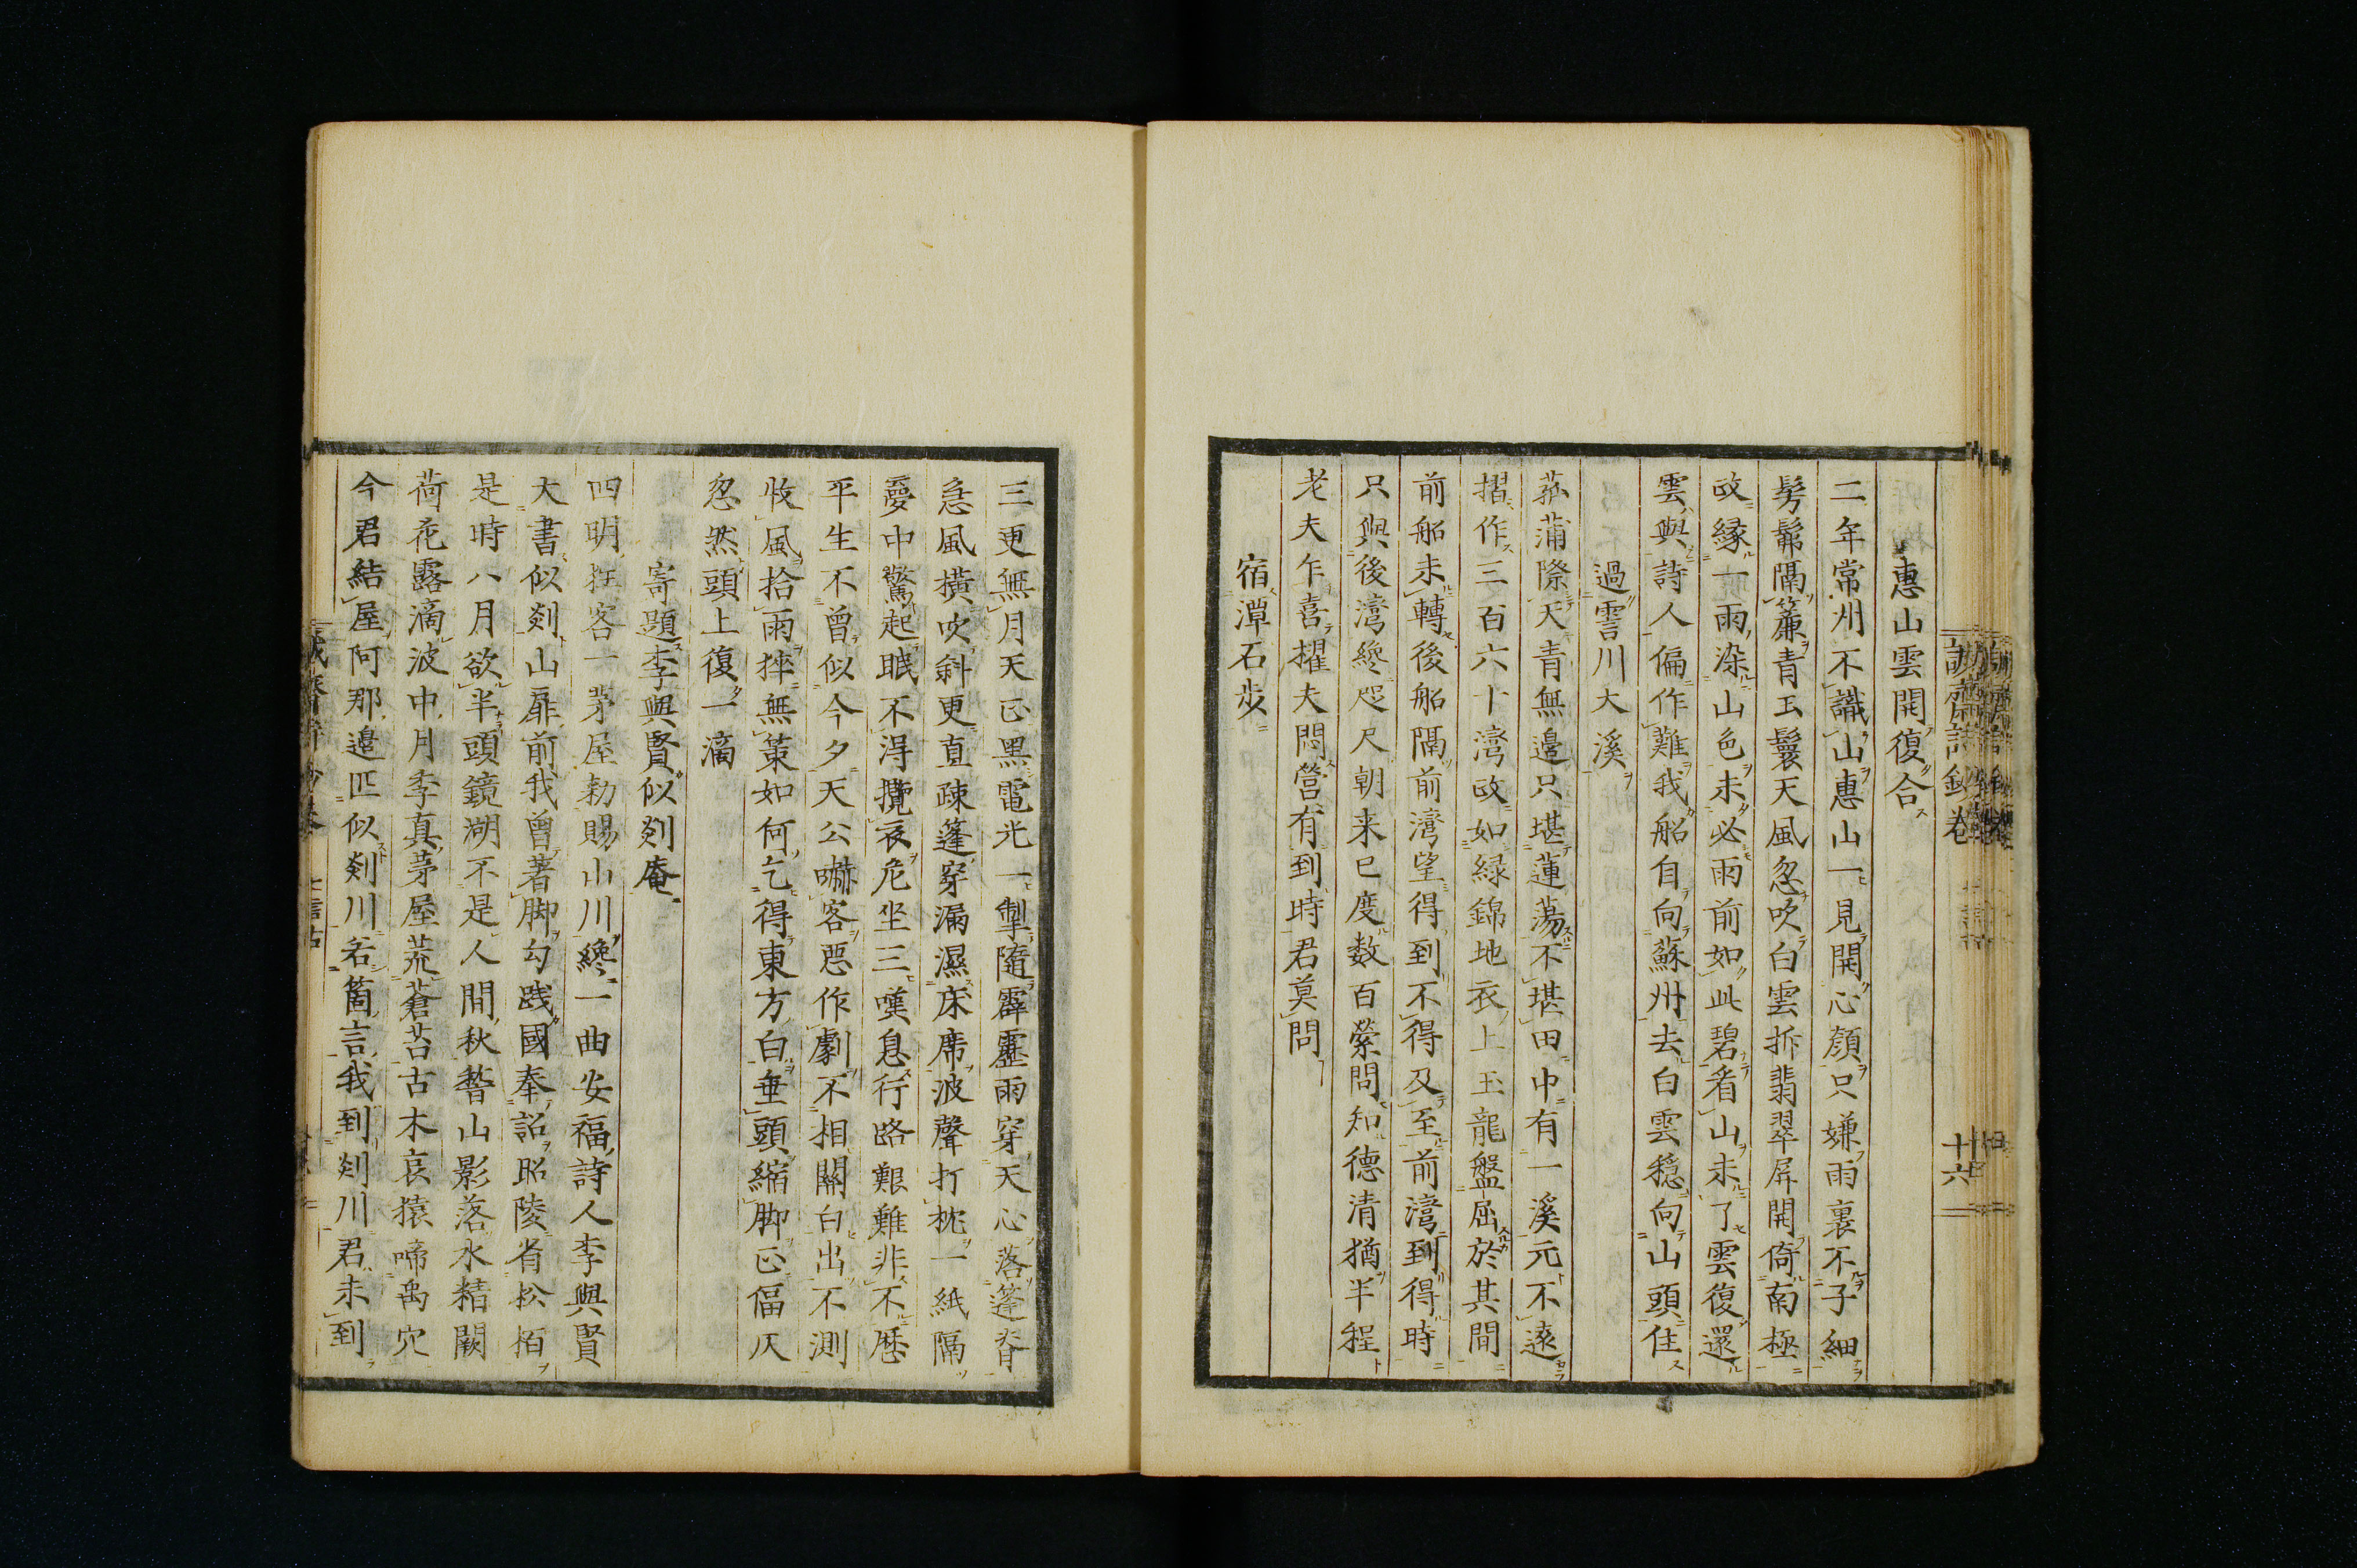 惠山雲開復合
二年常州不識山惠山一見開心顔只嫌雨裏不子細
髣髴隔簾青玉鬟天風忽吹白雲拆翡翠屏開倚南極
政縁一雨染山色未必雨前如此碧看山未了雲復還
雲與詩人偏作難我船自向蘇州去白雲穏向山頭住
過霅川大溪
菰蒲際天青無邉只堪蓮蕩不堪田中有一溪元不遠
摺作三百六十湾政如緑錦地衣上玉龍盤屈於其間
前船未轉後船隔前湾望得到不得及至前湾到得時
只與後湾纔咫尺朝来已度数百縈問知德清猶半程
老夫乍喜擢夫悶管有到時君莫問
宿潭石歩
三更無月天正黒電光一掣隨霹靂雨穿天心落篷脊
急風横吹斜更直疎篷穿漏濕床席波聲打枕一紙隔
夢中驚起眠不得攬衣危坐三嘆息行路艱難非不歴
平生不曾似今夕天公嚇客悪作劇不相關白出不測
收風拾雨猝無策如何乞得東方白垂頭縮脚正偪仄
忽然頭上復一滴
寄題李與賢似剡庵
四明狂客一茅屋勑賜山川纔一曲安福詩人李與賢
大書似剡山扉前我曾著脚勾践國奉詔昭陵省松栢
是時八月欲半頭鏡湖不是人間秋嵆山影落水精闕
荷花露滴波中月季真茅屋荒蒼苔古木哀猿啼禹穴
今君結屋阿那邉匹似剡川若箇言我到剡川君未到
誠齋詩鈔卷
十六